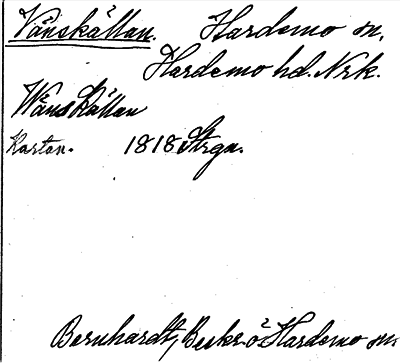 Vänskällan. Hardemo sn.
Hardemo hd. Nrk.
Wänskällan
Kartan. 1818 Strgn.
Bernhardt, Beskr. ö Hardemo sn.